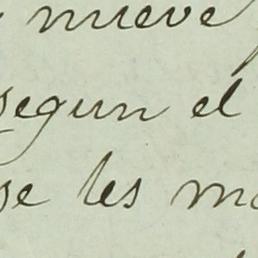 nueve
segun el
se les